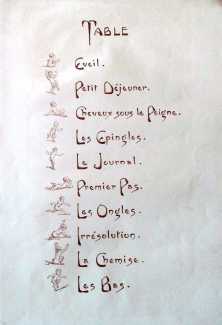 Table
Eveil.
Petit Déjeuner.
Cheveux sous le Peigne.
Les Epingles.
Le Journal.
Premier Pas.
Les Ongles.
Irrésolution.
La Chemise.
Les Bas.